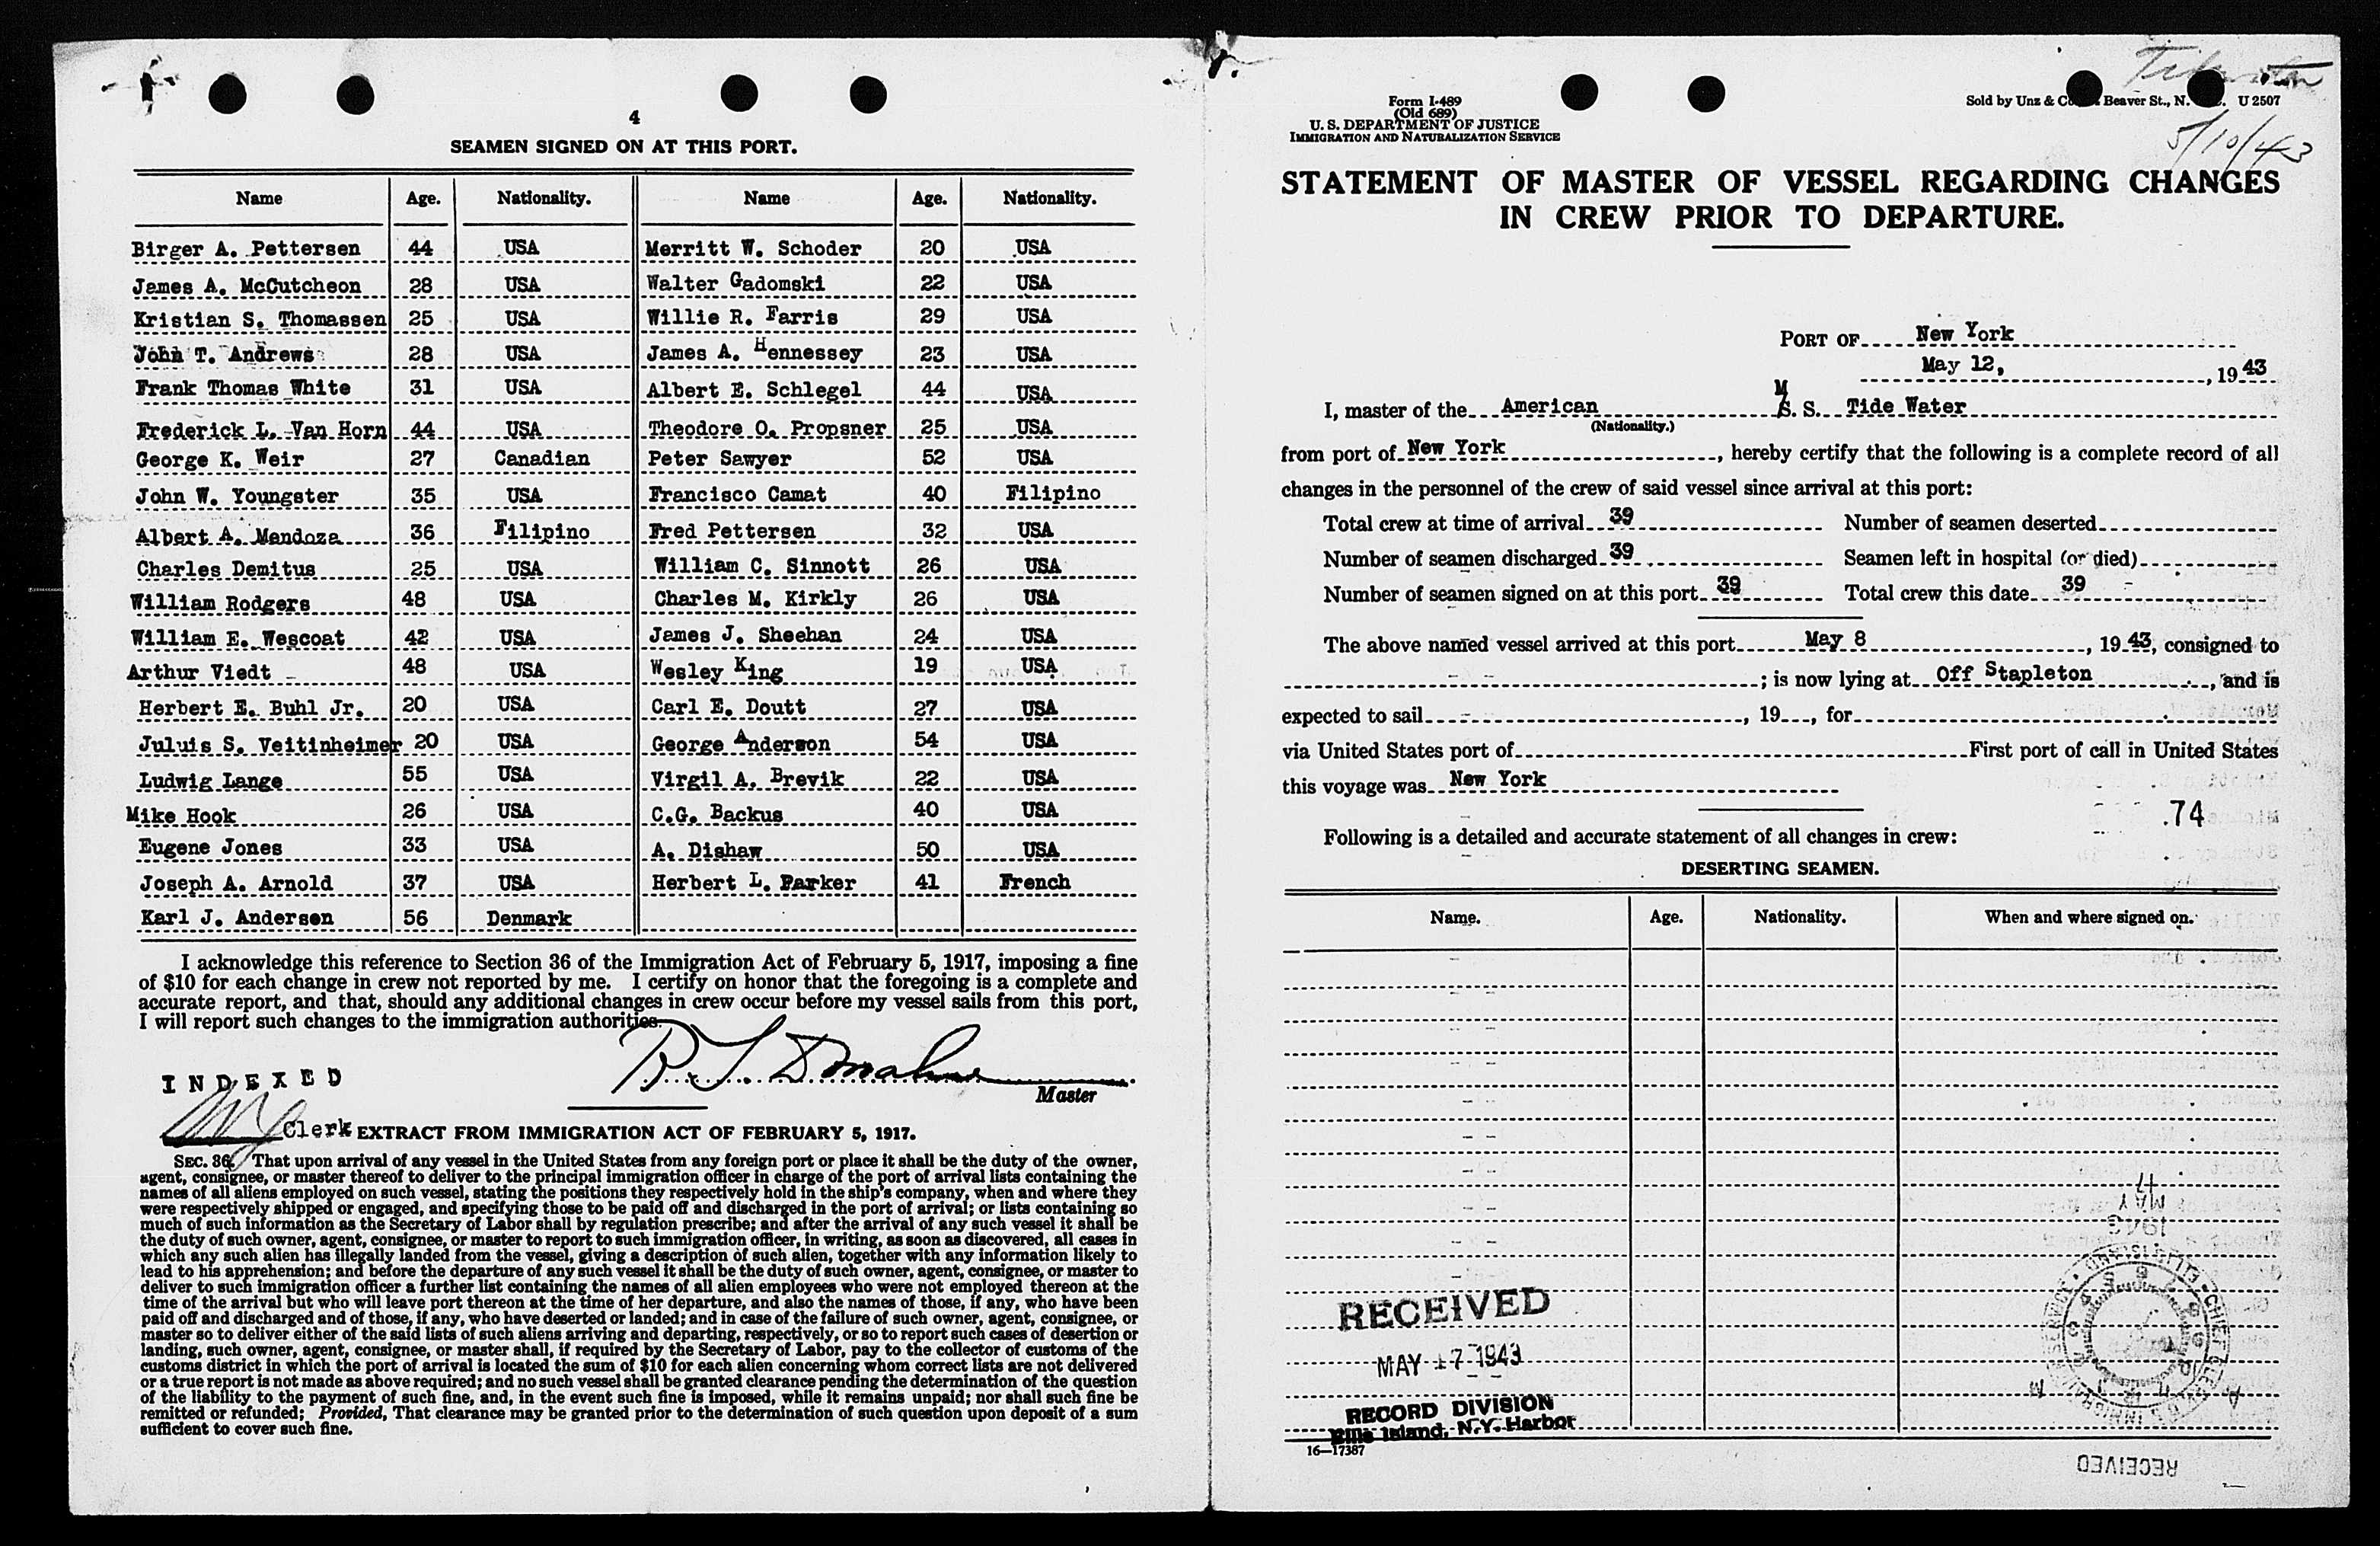 4
SEAMEN SIGNED ON AT THIS PORT.
Name Age. Nationality. Name Age. Nationality.
Birger A. Pettersen 44 USA Merritt W. Schoder 20 USA
James A. McCutcheon 28 USA Walter Gadomski 22 USA
Kristian S. Thomassen 25 USA Willie R. Farris 29 USA
John T. Andrews 28 USA James A. Hennessey 23 USA
Frank Thomas White 31 USA Albert E. Schlegel 44 USA
Frederick L. Van Horn 44 USA Theodore O. Propsner 25 USA
George K. Weir 27 Canadian Peter Sawyer 52 USA
John W. Youngster 35 USA Francisco Camat 40 Filipino
Albert A. Mendoza 36 Filipino Fred Pettersen 32 USA
Charles Demitus 25 USA William C. Sinnott 26 USA
William Rodgers 48 USA Charles M. Kirkly 26 USA
William E. Wescoat 42 USA James J. Sheehan 24 USA
Arthur Viedt 48 USA Wesley King 19 USA
Herbert E. Buhl Jr. 20 USA Carl E. Doutt 27 USA
Juluis S. Veitinheimer 20 USA George Anderson 54 USA
Ludwig Lange 55 USA Virgil A. Brevik 22 USA
Mike Hook 26 USA C.G. Backus 40 USA
Eugene Jones 33 USA A. Dishaw 50 USA
Joseph A. Arnold 37 USA Herbert L. Parker 41 French
Karl J. Andersen 56 Denmark
I acknowledge this reference to Section 36 of the Immigration Act of February 5, 1917, imposing a fine
of $10 for each change in crew not reported by me. I certify on honor that the foregoing is a complete and
accurate report, and that, should any additional changes in crew occur before my vessel sails from this port,
I will report such changes to the immigration authorities.
R. S. Donahue
Master
INDEXED
Clerk
EXTRACT FROM IMMIGRATION ACT OF FEBRUARY 5, 1917.
SEC. 36. That upon arrival of any vessel in the United States from any foreign port or place it shall be the duty of the owner,
agent, consignee, or master thereof to deliver to the principal immigration officer in charge of the port of arrival lists containing the
names of all aliens employed on such vessel, stating the positions they respectively hold in the ship's company, when and where they
were respectively shipped or engaged, and specifying those to be paid off and discharged in the port of arrival; or lists containing so
much of such information as the Secretary of Labor shall by regulation prescribe; and after the arrival of any such vessel it shall be
the duty of such owner, agent, consignee, or master to report to such immigration officer, in writing, as soon as discovered, all cases in
which any such alien has illegally landed from the vessel, giving a description of such alien, together with any information likely to
lead to his apprehension; and before the departure of any such vessel it shall be the duty of such owner, agent, consignee, or master to
deliver to such immigration officer a further list containing the names of all alien employees who were not employed thereon at the
time of the arrival but who will leave port thereon at the time of her departure, and also the names of those, if any, who have been
paid off and discharged and of those, if any, who have deserted or landed; and in case of the failure of such owner, agent, consignee, or
master so to deliver either of the said lists of such aliens arriving and departing, respectively, or so to report such cases of desertion or
landing, such owner, agent, consignee, or master shall, if required by the Secretary of Labor, pay to the collector of customs of the
customs district in which the port of arrival is located the sum of $10 for each alien concerning whom correct lists are not delivered
or a true report is not made as above required; and no such vessel shall be granted clearance pending the determination of the question
of the liability to the payment of such fine, and, in the event such fine is imposed, while it remains unpaid; nor shall such fine be
remitted or refunded; Provided, That clearance may be granted prior to the determination of such question upon deposit of a sum
sufficient to cover such fine.
Form I-489
(Old 689)
U. S. DEPARTMENT OF JUSTICE
IMMIGRATION AND NATURALIZATION SERVICE
Sold by Unz & Co. Beaver St., N. U 2507
5/10/43
STATEMENT OF MASTER OF VESSEL REGARDING CHANGES
IN CREW PRIOR TO DEPARTURE.
PORT OF New York
May 12, , 1943
I, master of the American M S. S. Tide Water
(Nationality.)
from port of New York , hereby certify that the following is a complete record of all
changes in the personnel of the crew of said vessel since arrival at this port:
Total crew at time of arrival 39 Number of seamen deserted
Number of seamen discharged 39 Seamen left in hospital (or died)
Number of seamen signed on at this port 39 Total crew this date 39
The above named vessel arrived at this port May 8 , 1943, consigned to
; is now lying at Off Stapleton , and is
expected to sail , 19 , for
via United States port of First port of call in United States
this voyage was New York
.74
Following is a detailed and accurate statement of all changes in crew:
DESERTING SEAMEN.
Name. Age. Nationality. When and where signed on.
RECEIVED
MAY 17 1943
RECORD DIVISION
Ellis Island, N.Y. Harbor
16—17387
MAY 17
1943
RECEIVED